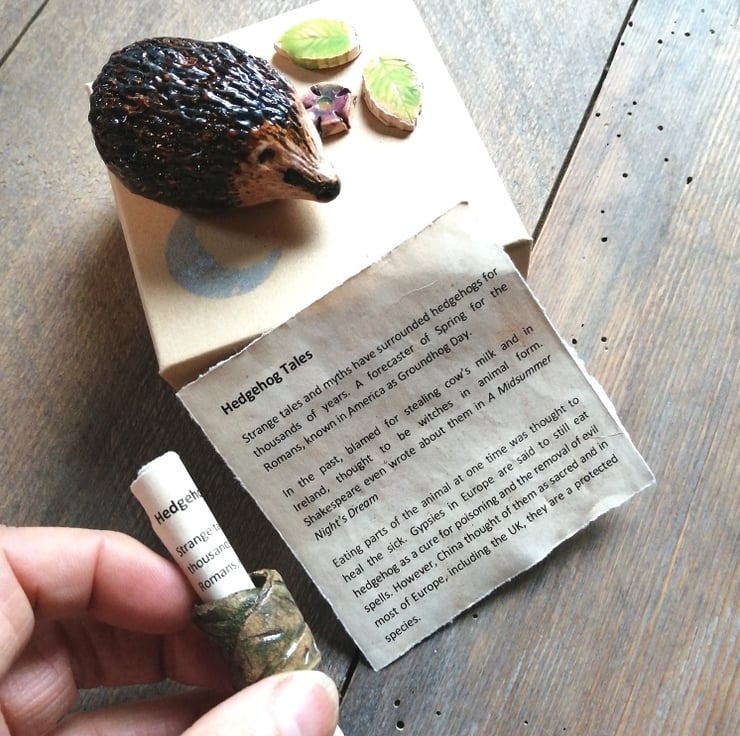 Hedgehog Tales
Strange tales and myths have surrounded hedgehogs for
thousands of years. A forecaster of Spring for the
Romans, known in America as Groundhog Day.
In the past, blamed for stealing cow's milk and in
Ireland, thought to be witches in animal form.
Shakespeare even wrote about them in A Midsummer
Night's Dream
Eating parts of the animal at one time was thought to
heal the sick. Gypsies in Europe are said to still eat
hedgehog as a cure for poisoning and the removal of evil
spells. However, China thought of them as sacred and in
most of Europe, including the UK, they are a protected
species.
Hedgeho
Strange ta
thousand
Romans,